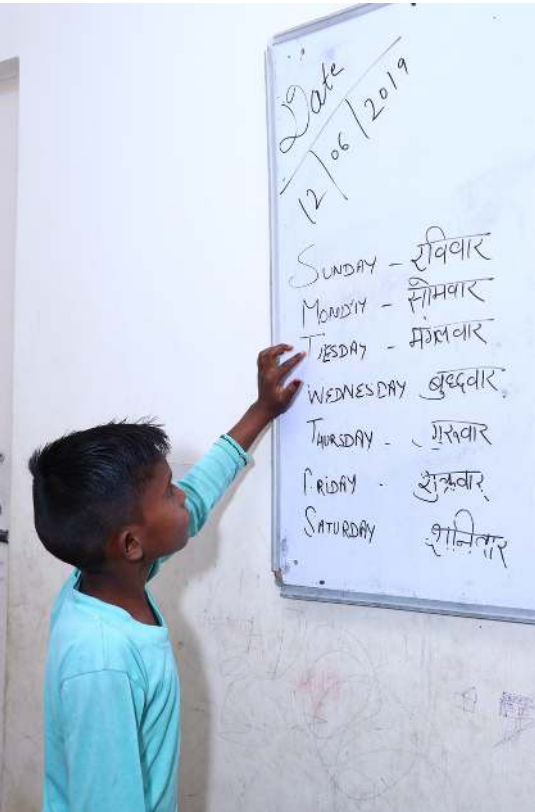 Date
12/06/2019
SUNDAY - रविवार
MONDAY - सोमवार
TUESDAY - मंगलवार
WEDNESDAY बुध्दवार
THURSDAY - गुरूवार
FRIDAY - शुक्रवार
SATURDAY शनिवार